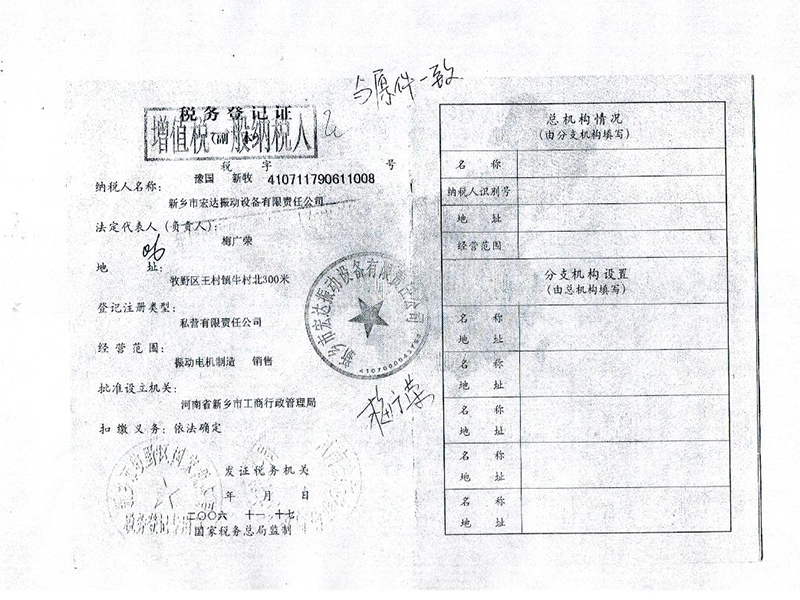 与原件一致
税务登记证
(副本)
增值税一般纳税人
税 字 号
豫国 新牧 410711790611008
纳税人名称：
新乡市宏达振动设备有限责任公司
法定代表人（负责人）：
梅广荣
地 址：
牧野区王村镇牛村北300米
登记注册类型：
私营有限责任公司
经营范围：
振动电机制造 销售
批准设立机关：
河南省新乡市工商行政管理局
扣缴义务：依法确定
新乡市宏达振动设备有限责任公司
梅广荣
发证税务机关
年 月 日
二〇〇六 十一 十七
国家税务总局监制
税务登记专用
总机构情况
（由分支机构填写）
名 称
纳税人识别号
地 址
经营范围
分支机构设置
（由总机构填写）
名 称
地 址
名 称
地 址
名 称
地 址
名 称
地 址
名 称
地 址